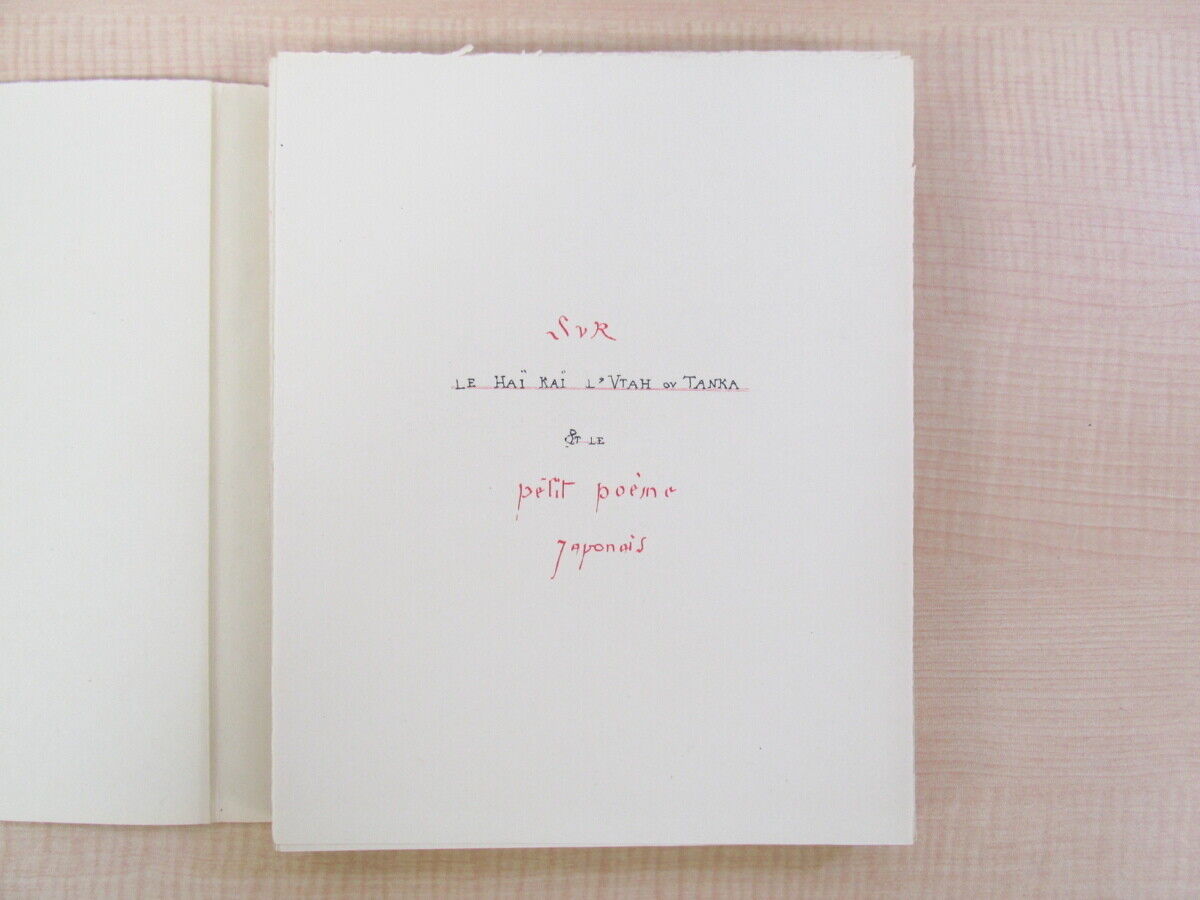 SVR
LE HAÏ KAÏ L'VTAH OV TANKA
& LE
pétit poème
Japonais